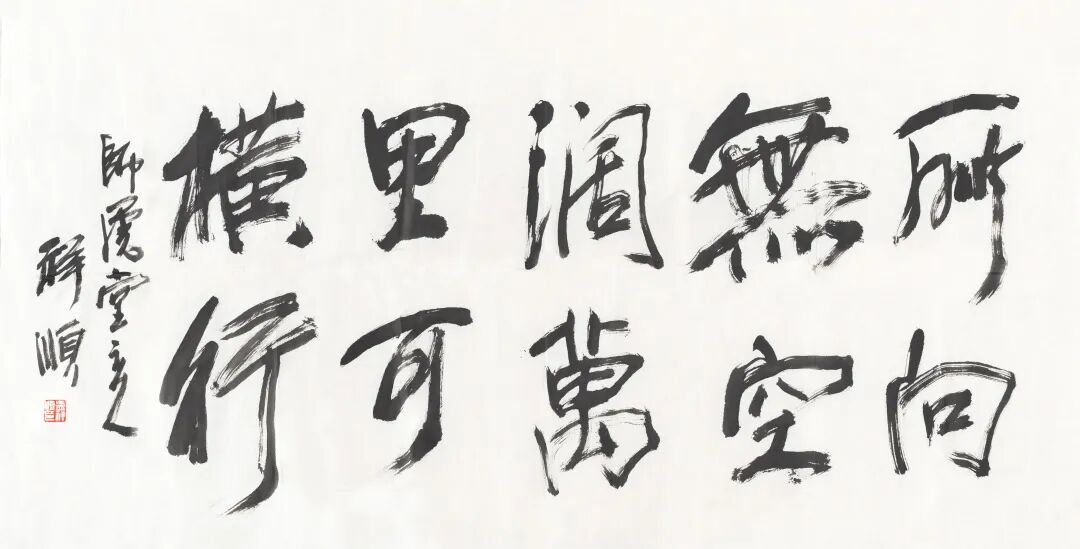 所向
無空
濶萬
里可
横行
師堂主人
祥順